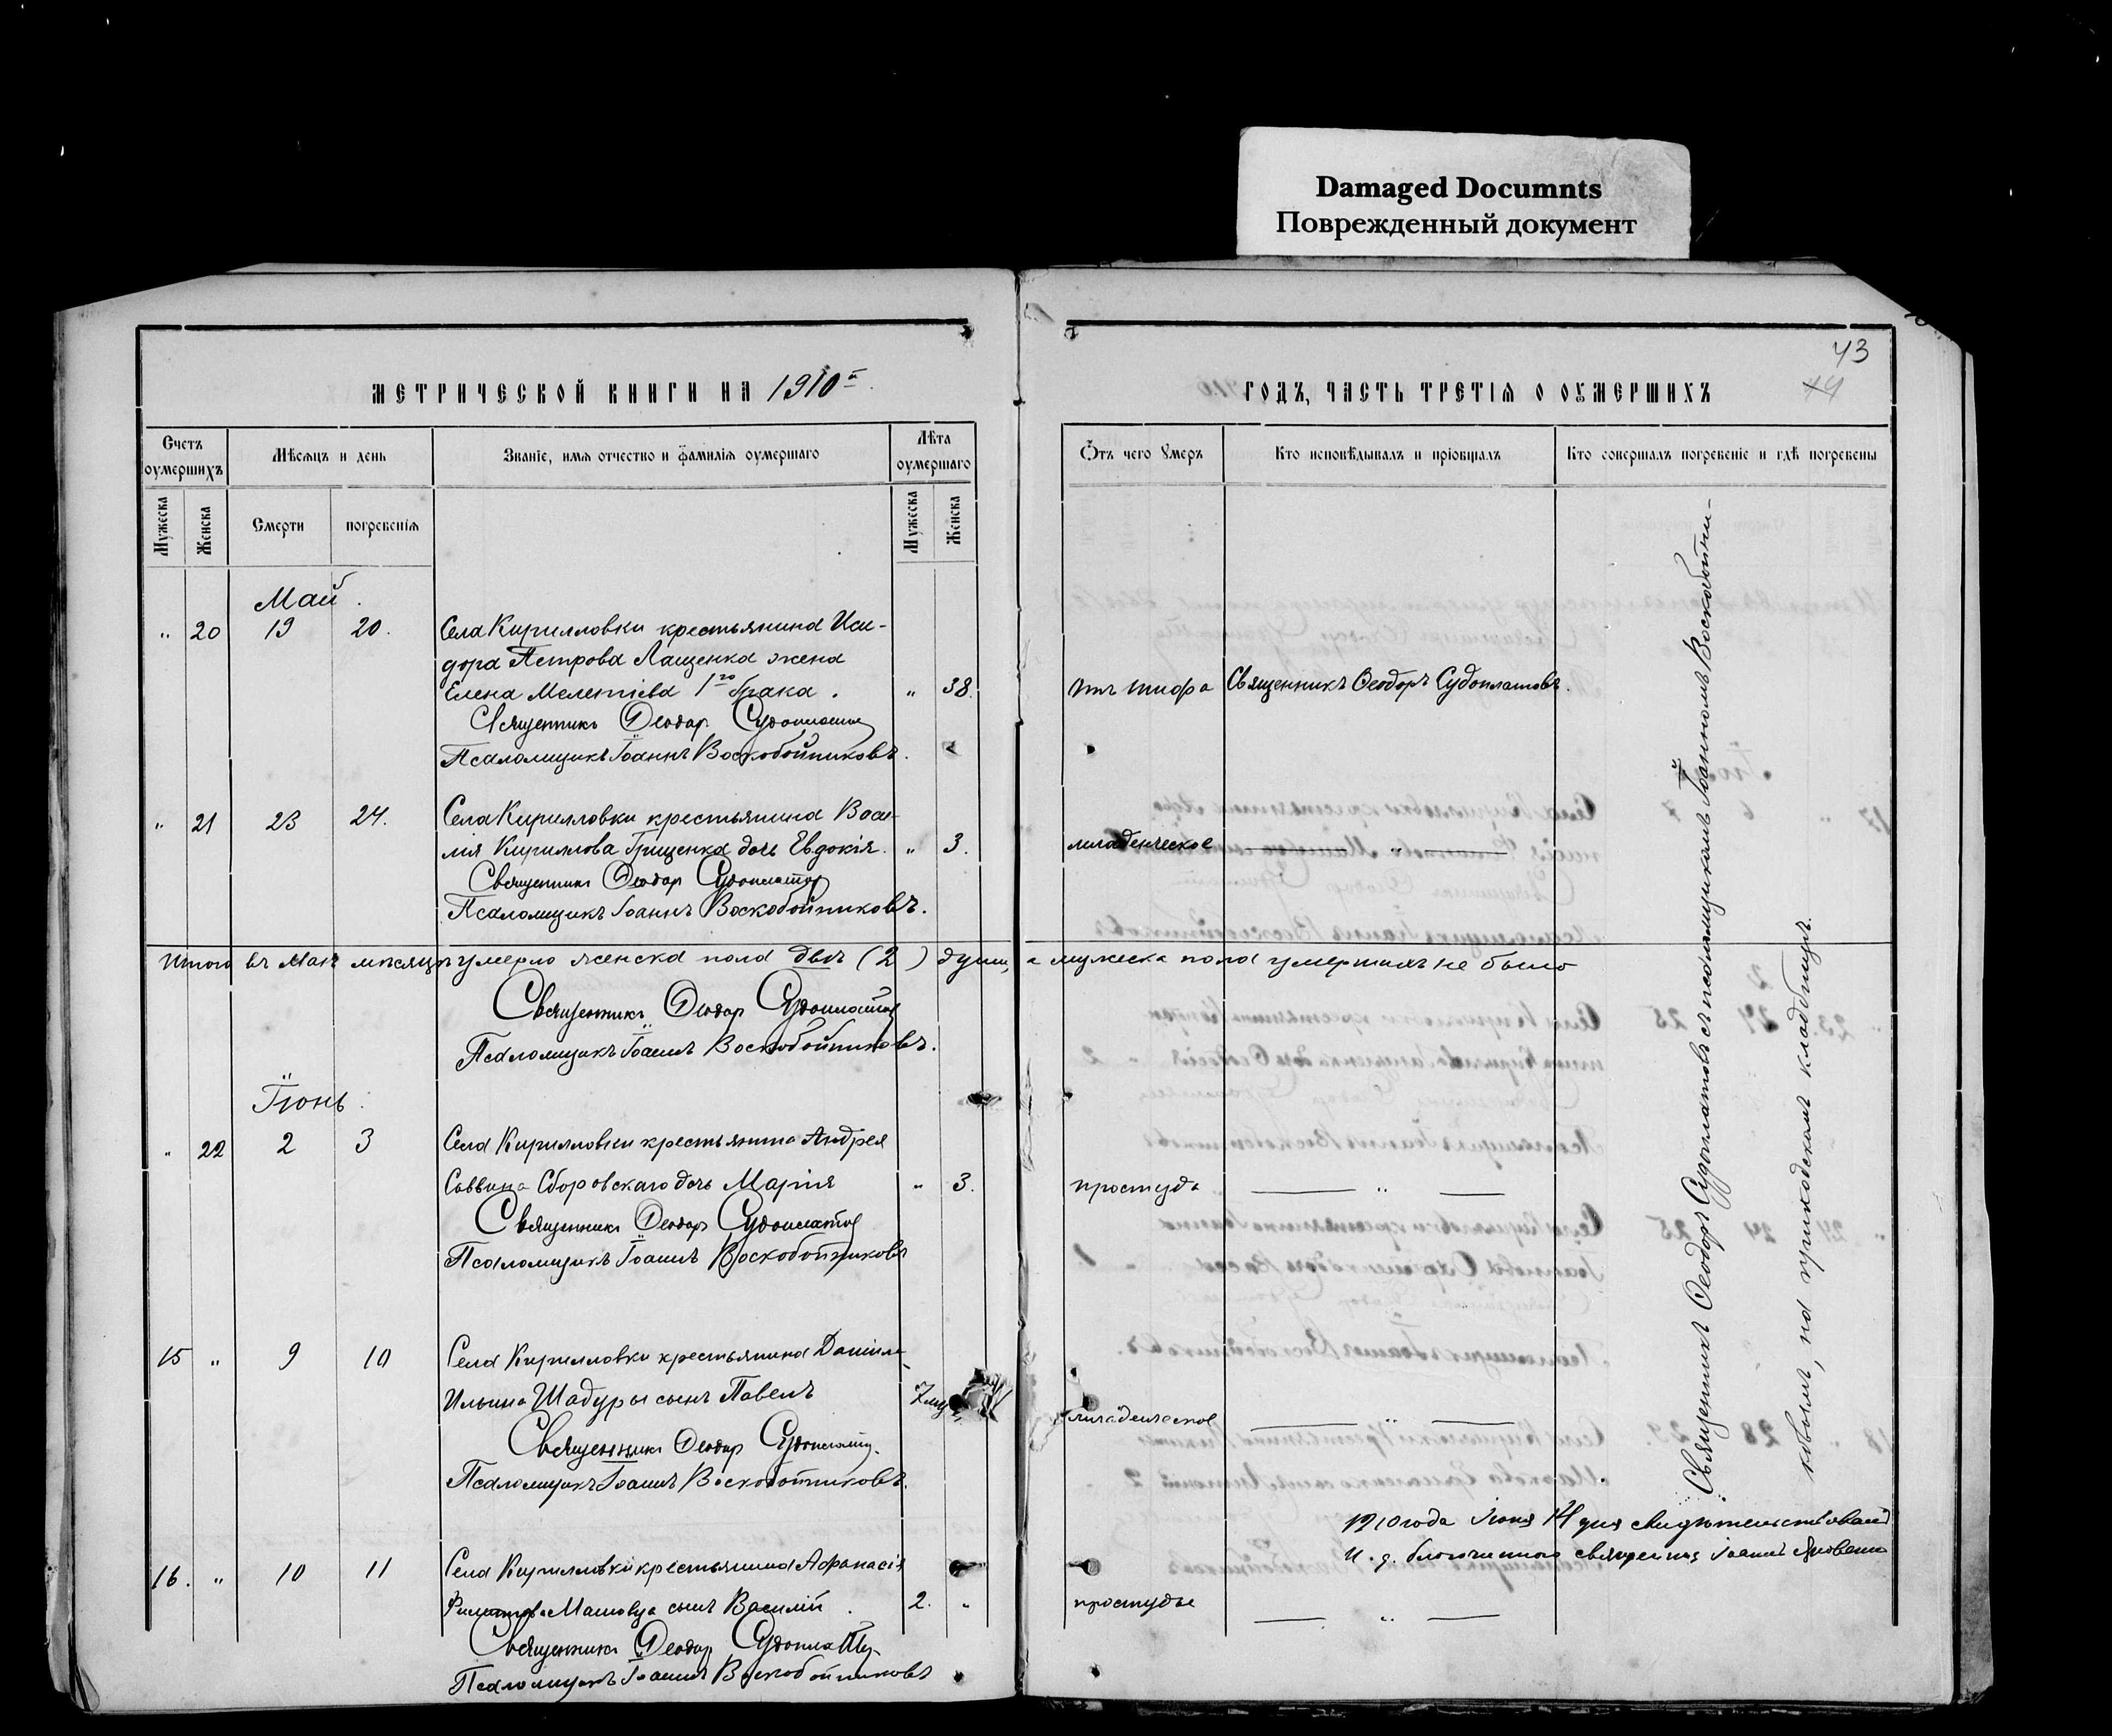 Damaged Documnts
Поврежденный документ
43
МЕТРИЧЕСКОЙ КНИГИ НА 1910й
ГОДЪ, ЧАСТЬ ТРЕТІѦ О ОУМЕРШИХЪ
Счетъ оумершихъ
Мѣсяцъ и день
Званіе, имѧ отчество и фамиліѧ оумершаго
Лѣта оумершаго
Отъ чего Умеръ
Кто исповѣдывалъ и пріобщалъ
Кто совершалъ погребеніе и гдѣ погребены
Мужеска
Женска
Смерти
погребеніѧ
Мужеска
Женска
Май.
" 20 19 20. Села Кирилловки крестьянина Иси-
дора Петрова Лащенка жена
Елена Мелетіева 1го брака. " 38. отъ тифа Священникъ Ѳеодоръ Судоплатовъ.
Священникъ Ѳеодоръ Судоплатов
Псаломщикъ Іоаннъ Воскобойниковъ.
" 21 23 24. Села Кирилловки крестьянина Васи-
лія Кириллова Грищенка дочь Евдокія. " 3. младенческое — " —
Священникъ Ѳеодор Судоплатов
Псаломщикъ Іоаннъ Воскобойниковъ.
Итого въ Маѣ мѣсяцѣ умерло женска пола двѣ (2) души, а мужеска пола умершихъ не было
Священникъ Ѳеодор Судоплатов
Псаломщикъ Іоаннъ Воскобойниковъ.
Іюнь.
" 22 2 3 Села Кирилловки крестьянина Андрея
Саввина Сборовскаго дочь Марія " 3. простуда — " —
Священникъ Ѳеодоръ Судоплатов
Псаломщикъ Іоаннъ Воскобойниковъ
15 " 9 10 Села Кирилловки крестьянина Даніила
Ильина Шадуры сынъ Павелъ 7 мц младенческое — " —
Священникъ Ѳеодор Судоплатов
Псаломщикъ Іоаннъ Воскобойниковъ.
16. " 10 11 Села Кирилловки крестьянина Аѳанасія
Машовца сынъ Василій. 2. " простуды — " —
Священникъ Ѳеодор Судоплатов
Псаломщикъ Іоаннъ Воскобойниковъ
Священникъ Ѳеодоръ Судоплатовъ съ псаломщикомъ Іоанномъ Воскобойни-
ковымъ, на приходскомъ кладбищѣ.
1910 года Іюня 14 дня свидѣтельствовалъ
И. д. благочиннаго священникъ Іоаннъ Яковенко